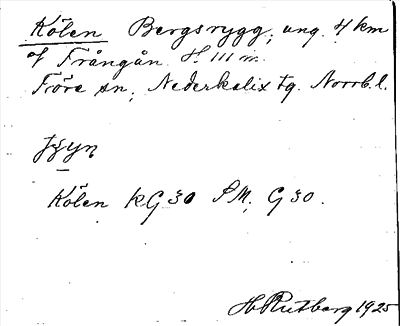 Kölen Bergsrygg, ung. 4 km
af Frångån. H. 111 m.
Töre sn, Nederkalix tg. Norrb. l.
Kölen KG 30 S.M. G 30.
H Rutberg 1925